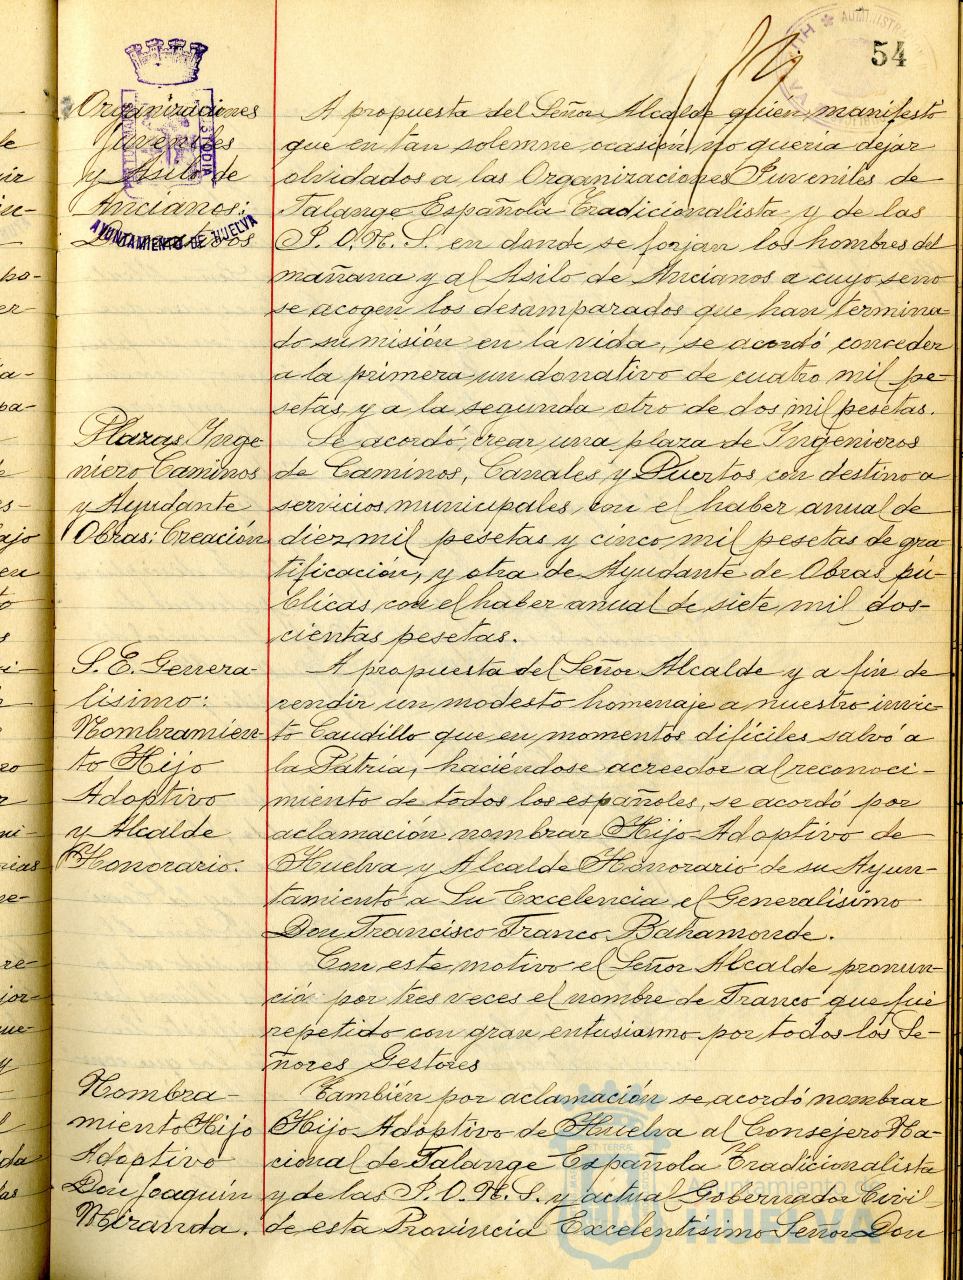 54
Organizaciones
Juveniles
y Asilo de
Ancianos:
AYUNTAMIENTO DE HUELVA
A propuesta del Señor Alcalde quien, manifestó
que en tan solemne, ocasión, no quería dejar
olvidados a las Organizaciones Juveniles de
Falange Española Tradicionalista y de las
J. O. N. S. en donde se forjan los hombres del
mañana y al Asilo de Ancianos a cuyo seno
se acogen los desamparados que han termina-
do su misión en la vida, se acordó conceder
a la primera un donativo de cuatro mil pe-
setas y a la segunda otro de dos mil pesetas.
Plazas Inge
niero Caminos
y Ayudante
Obras: Creación
Se acordó, crear una plaza de Ingenieros
de Caminos, Canales y Puertos con destino a
servicios municipales, con el haber anual de
diez mil pesetas y cinco mil pesetas de gra-
tificación, y otra de Ayudante de Obras pú-
blicas con el haber anual de siete mil dos-
cientas pesetas.
S. E. Genera-
lísimo:
Nombramien-
to Hijo
Adoptivo
y Alcalde
Honorario.
A propuesta del Señor Alcalde y a fin de
rendir un modesto homenaje a nuestro invic-
to Caudillo que en momentos difíciles salvó a
la Patria, haciéndose acreedor al reconoci-
miento de todos los españoles, se acordó por
aclamación nombrar Hijo Adoptivo de
Huelva y Alcalde Honorario de su Ayun-
tamiento a Su Excelencia el Generalísimo
Don Francisco Franco Bahamonde.
Con este motivo el Señor Alcalde pronun-
ció por tres veces el nombre de Franco que fué
repetido con gran entusiasmo por todos los Se-
ñores Gestores
Nombra-
miento Hijo
Adoptivo
Don Joaquín
Miranda.
También por aclamación se acordó nombrar
Hijo Adoptivo de Huelva al Consejero Na-
cional de Falange Española Tradicionalista
y de las J. O. N. S. y actual Gobernador Civil
de esta Provincia Excelentísimo Señor Don
Ayuntamiento de
HUELVA